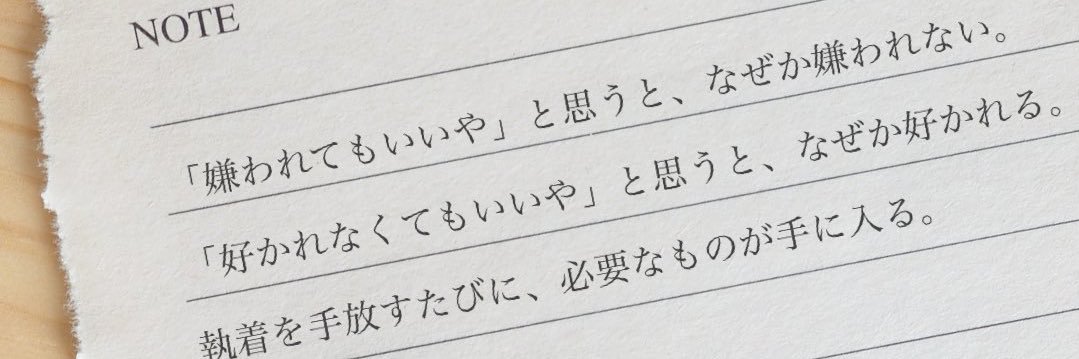 NOTE
「嫌われてもいいや」と思うと、なぜか嫌われない。
「好かれなくてもいいや」と思うと、なぜか好かれる。
執着を手放すたびに、必要なものが手に入る。